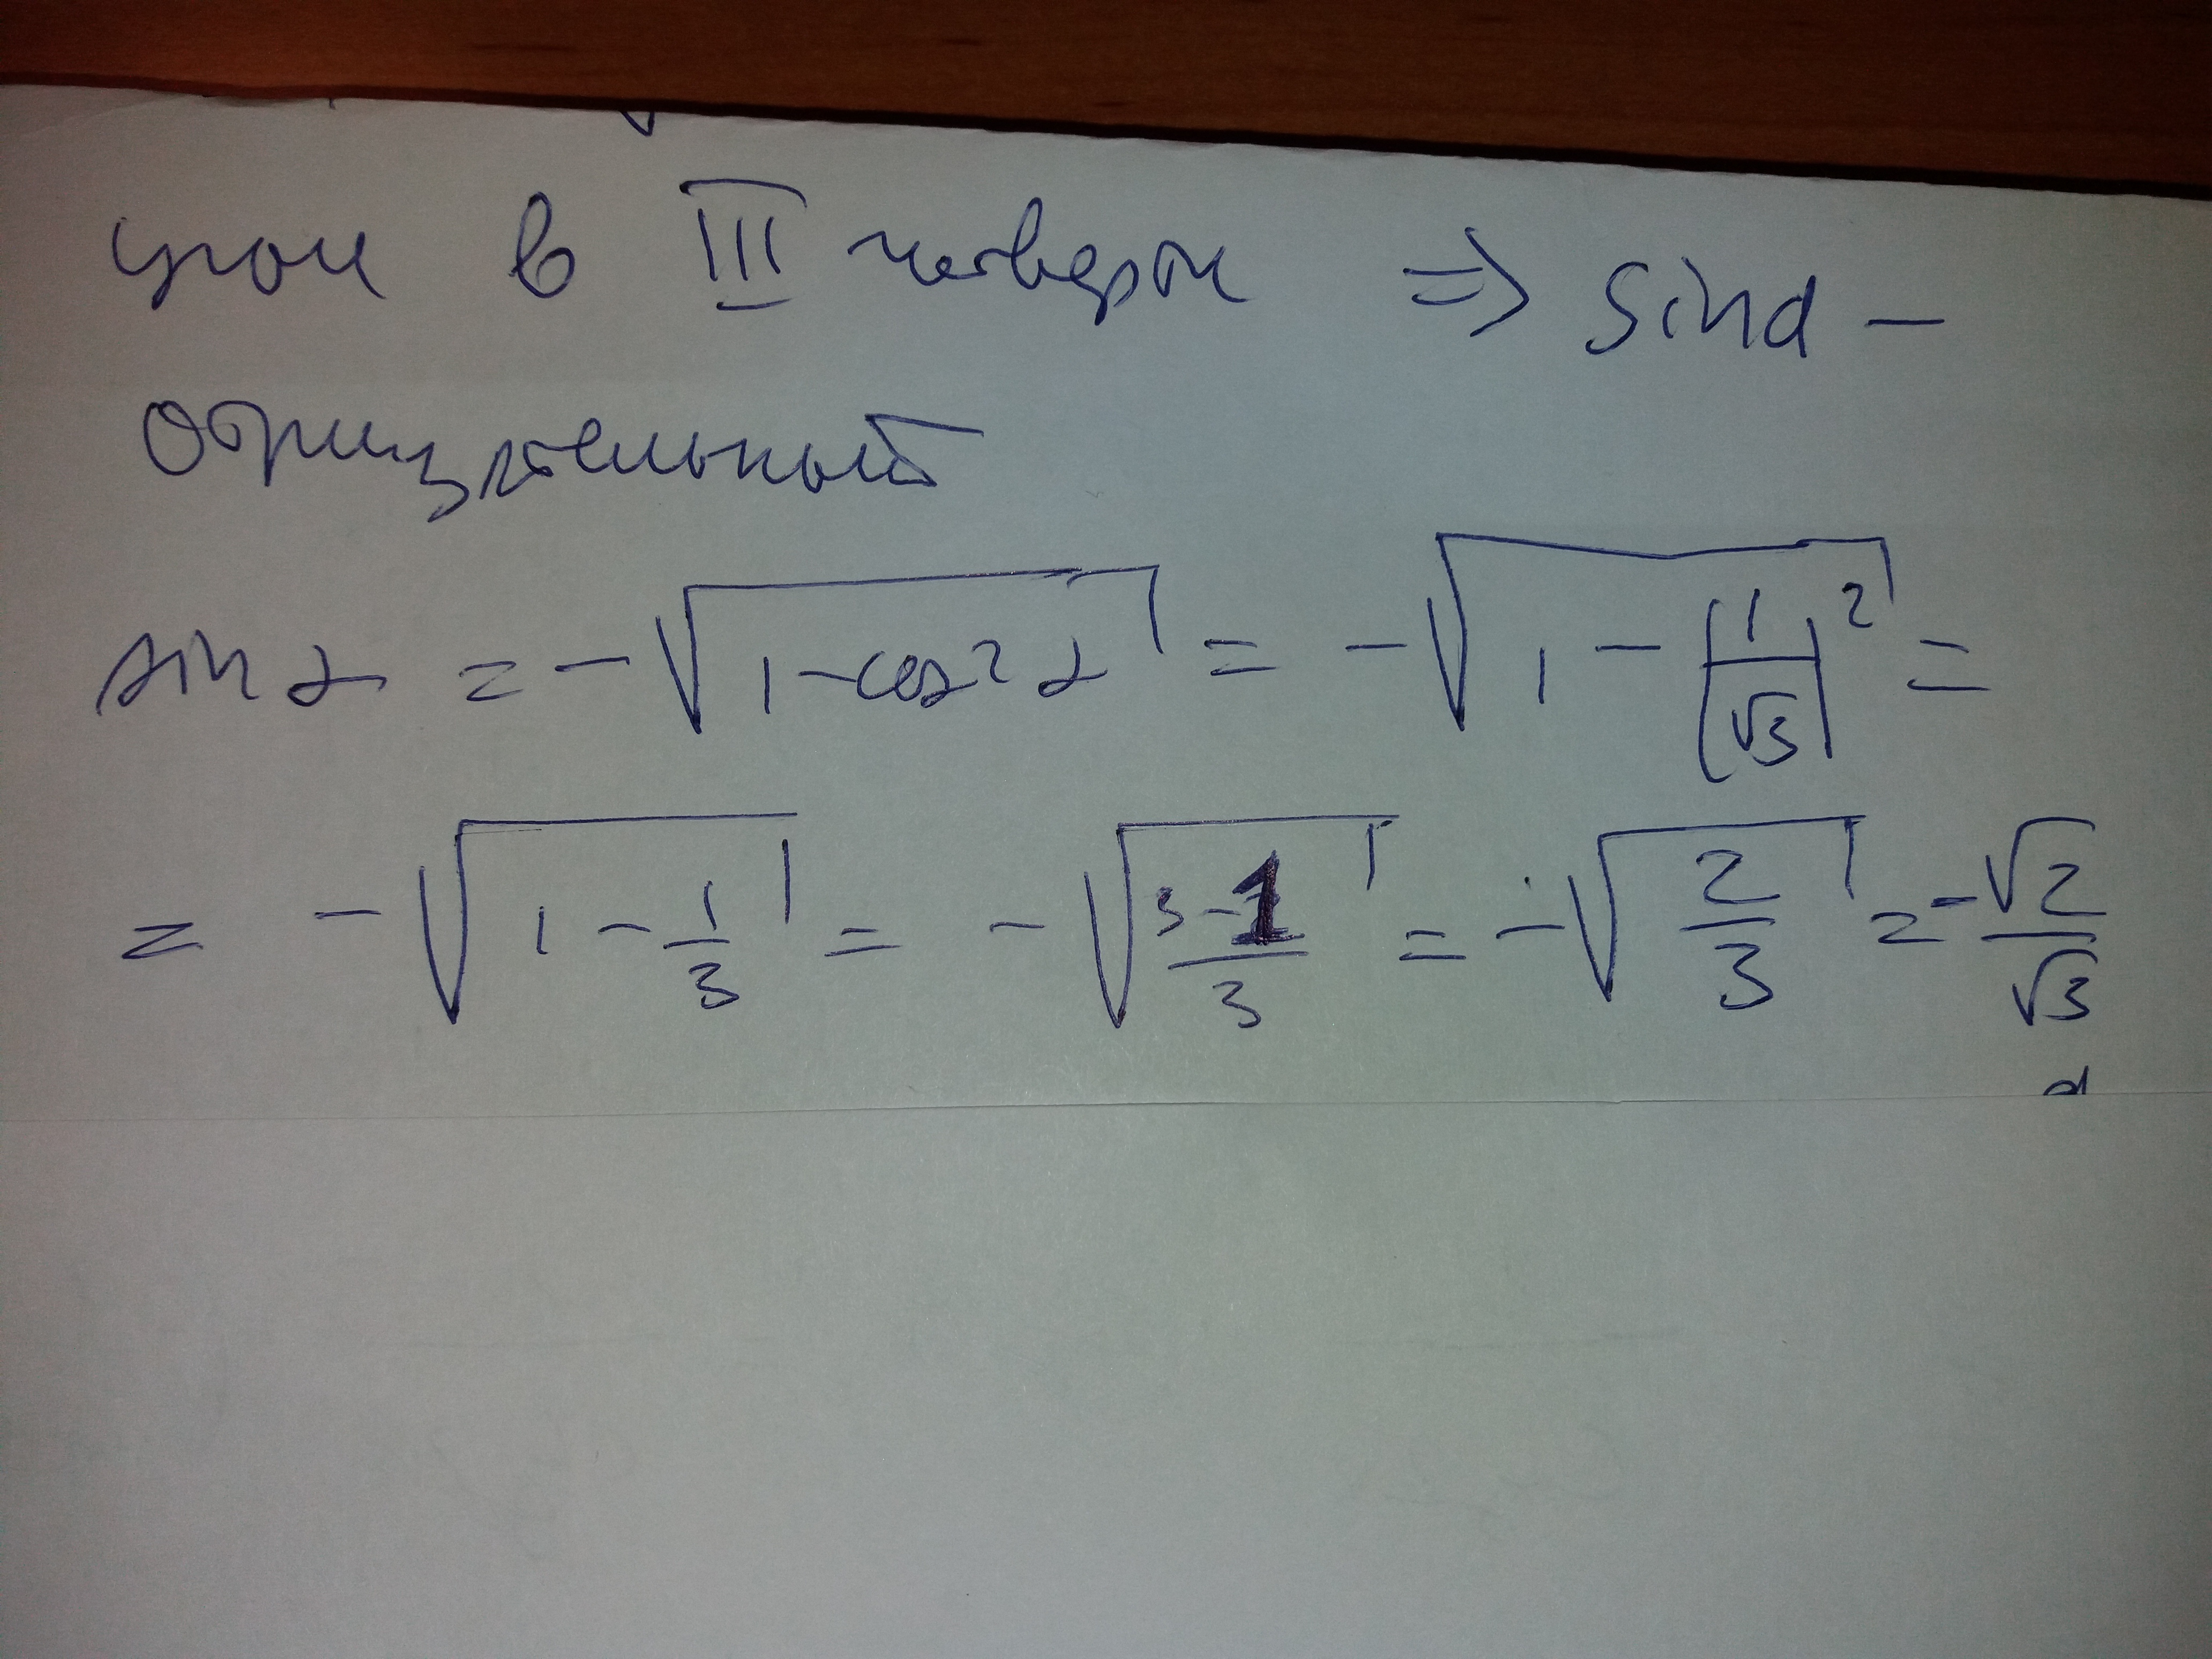 угол в III четверти => sinα –
отрицательный
sin α = -√(1-cos²α) = -√(1-(1/√3)²) =
= -√(1-1/3) = -√((3-1)/3) = -√(2/3) = -√2/√3